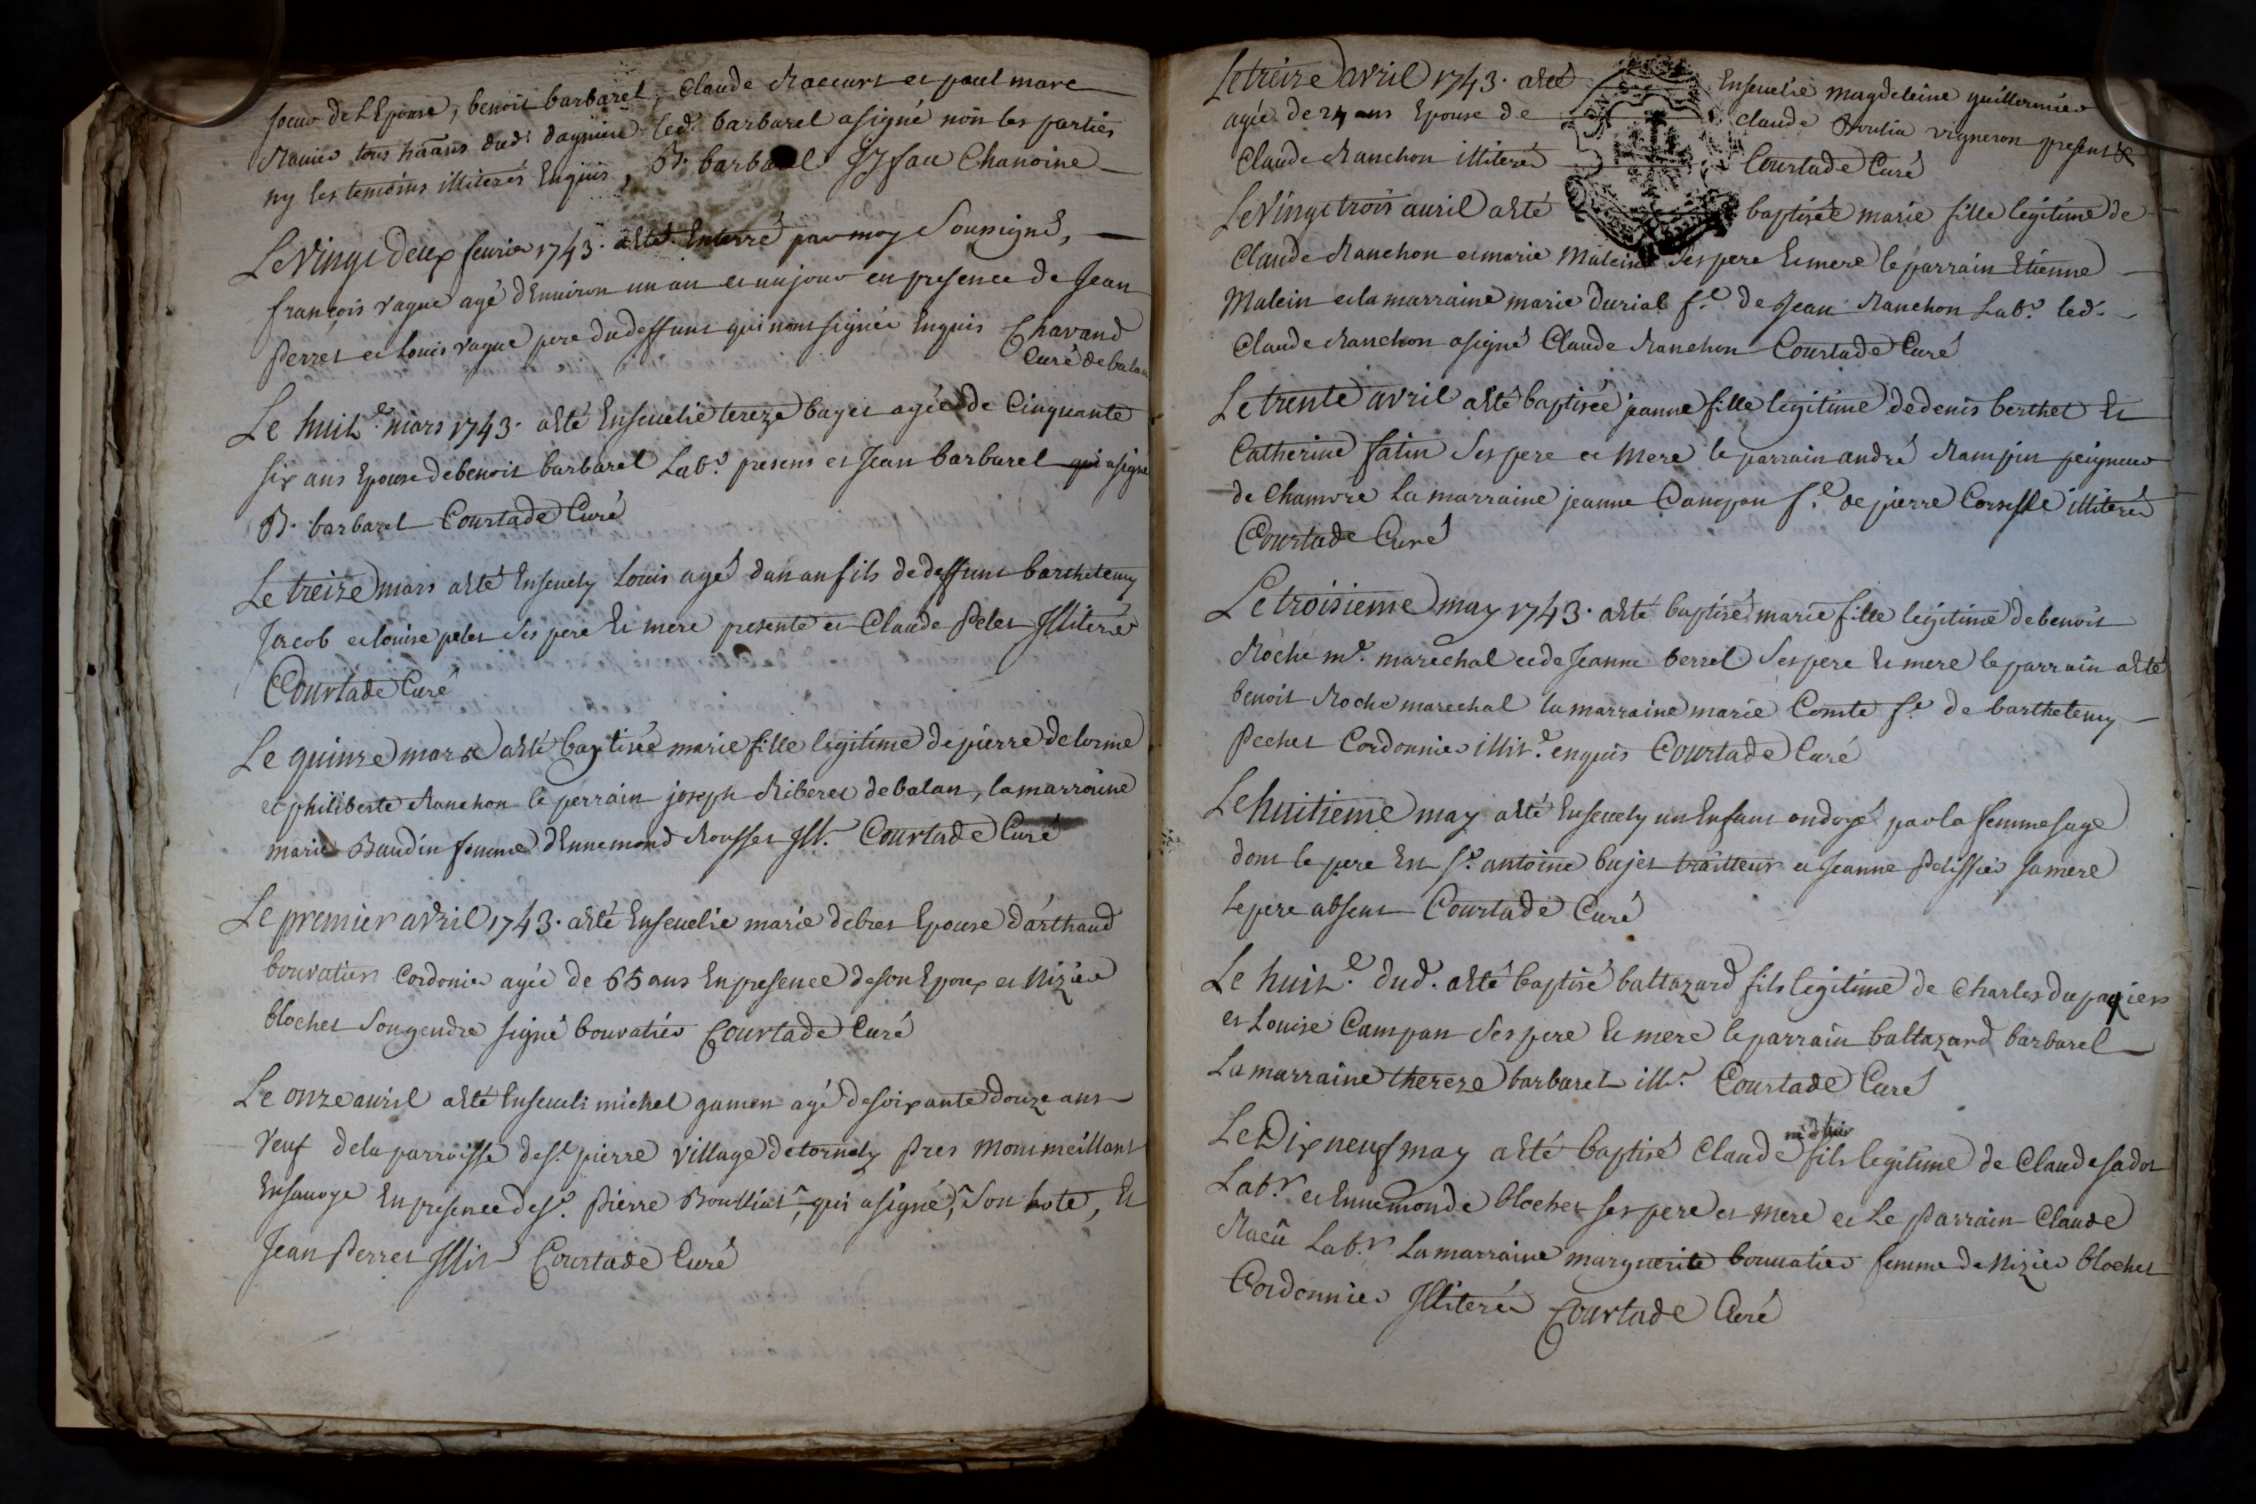 soeur de L'Epouse, benoit barbarel, Claude Raccurt et paul marc
Ravier tous h̃ãans dud. dagnieu led. barbarel a signé non les parties
ny les temoins illiterés Enquis, B. barbarel Chanoine
Le Vingt deux fevrier 1743. a Eté Enterré par moy Soussigné,
françois vague agé d'Environ un an et un jour en presence de Jean
Perret et Louis vague pere du deffunt qui n'ont signé Enquis Chavand
Curé de balan
Le huit.e mars 1743. a Eté Ensevelie tereze bayet agée de Cinquante
six ans Epouse de benoit barbarel Lab.r presens et Jean barbarel qui a signé
B. barbarel Courtade Curé
Le treize mars a Eté Ensevely Louis agé d'un an fils de deffunt barthelemy
Jacob et louise pelet Ses pere Et mere presente et Claude Pelet Illiterés
Courtade Curé
Le quinze mars a Eté baptisée marie fille legitime de pierre delorme
et philiberte Ranchon le perrain joseph Riberet de balan, la marraine
marie Baudin femme d'Ennemond Rousset Ill. Courtade Curé
Le premier avril 1743. a Eté Ensevelie marie debret Epouse d'arthaud
bouvatier Cordonier agée de 65 ans En presence de son Epoux et Nizier
blochet Son gendre signé bouvatier Courtade Curé
Le onze avril a Eté Enseveli michel gamen agé de soixante douze ans
Veuf de la parroisse de St. pierre village de tornely Pres Monmeillant
En savoye En presence de Sr. Pierre Boulliat, qui a signé, Son hote, Et
Jean Perret Illit Courtade Curé
Le treize avril 1743. a Eté Ensevelie magdeleine guillermier
agée de 24 ans Epouse de Claude vigneron present &
Claude Ranchon illiterés Courtade Curé
Le Vingt trois avril a Eté baptisée marie fille legitime de
Claude Ranchon et marie Malein Ses pere Et mere le parrain Etienne
Malein et la marraine marie durial f.e de Jean Ranchon Lab.r led.
Claude Ranchon a signé Claude Ranchon Courtade Curé
Le trente avril a Eté baptisée jeanne fille legitime de denis berthet Et
Catherine fatin Ses pere et Mere le parrain andré Rampin peigneur
de Chanvre La marraine jeanne f.e de pierre illiterés
Courtade Curé
Le troisieme may 1743. a Eté baptisé marie fille legitime de benoit
Roche m.e marechal et de Jeanne berret Ses pere Et mere le parrain a Eté
benoit Roche marechal la marraine marie Comte f.e de barthelemy
Pechet Cordonnier illit.e enquis Courtade Curé
Le huitieme may a Eté Ensevely un Enfant ondoyé par la femme sage
dont le pere Est Sr. antoine bujet traitteur et Jeanne Pelissier sa mere
Le pere absent Courtade Curé
Le huit.e dud. a Eté baptisé baltazard fils legitime de Charles dupaquier
et Louise Campan Ses pere Et mere le parrain baltazard barbarel
La marraine thereze barbaret ill.r Courtade Curé
né d'hier
Le Dix neuf may a Eté baptisé Claude fils legitime de Claude sadot
Lab.r et Ennemonde blochet ses pere et mere et Le Parrain Claude
Lab.r La marraine marguerite bouvatier femme de Nizier blochet
Cordonnier Illiterés Courtade Curé